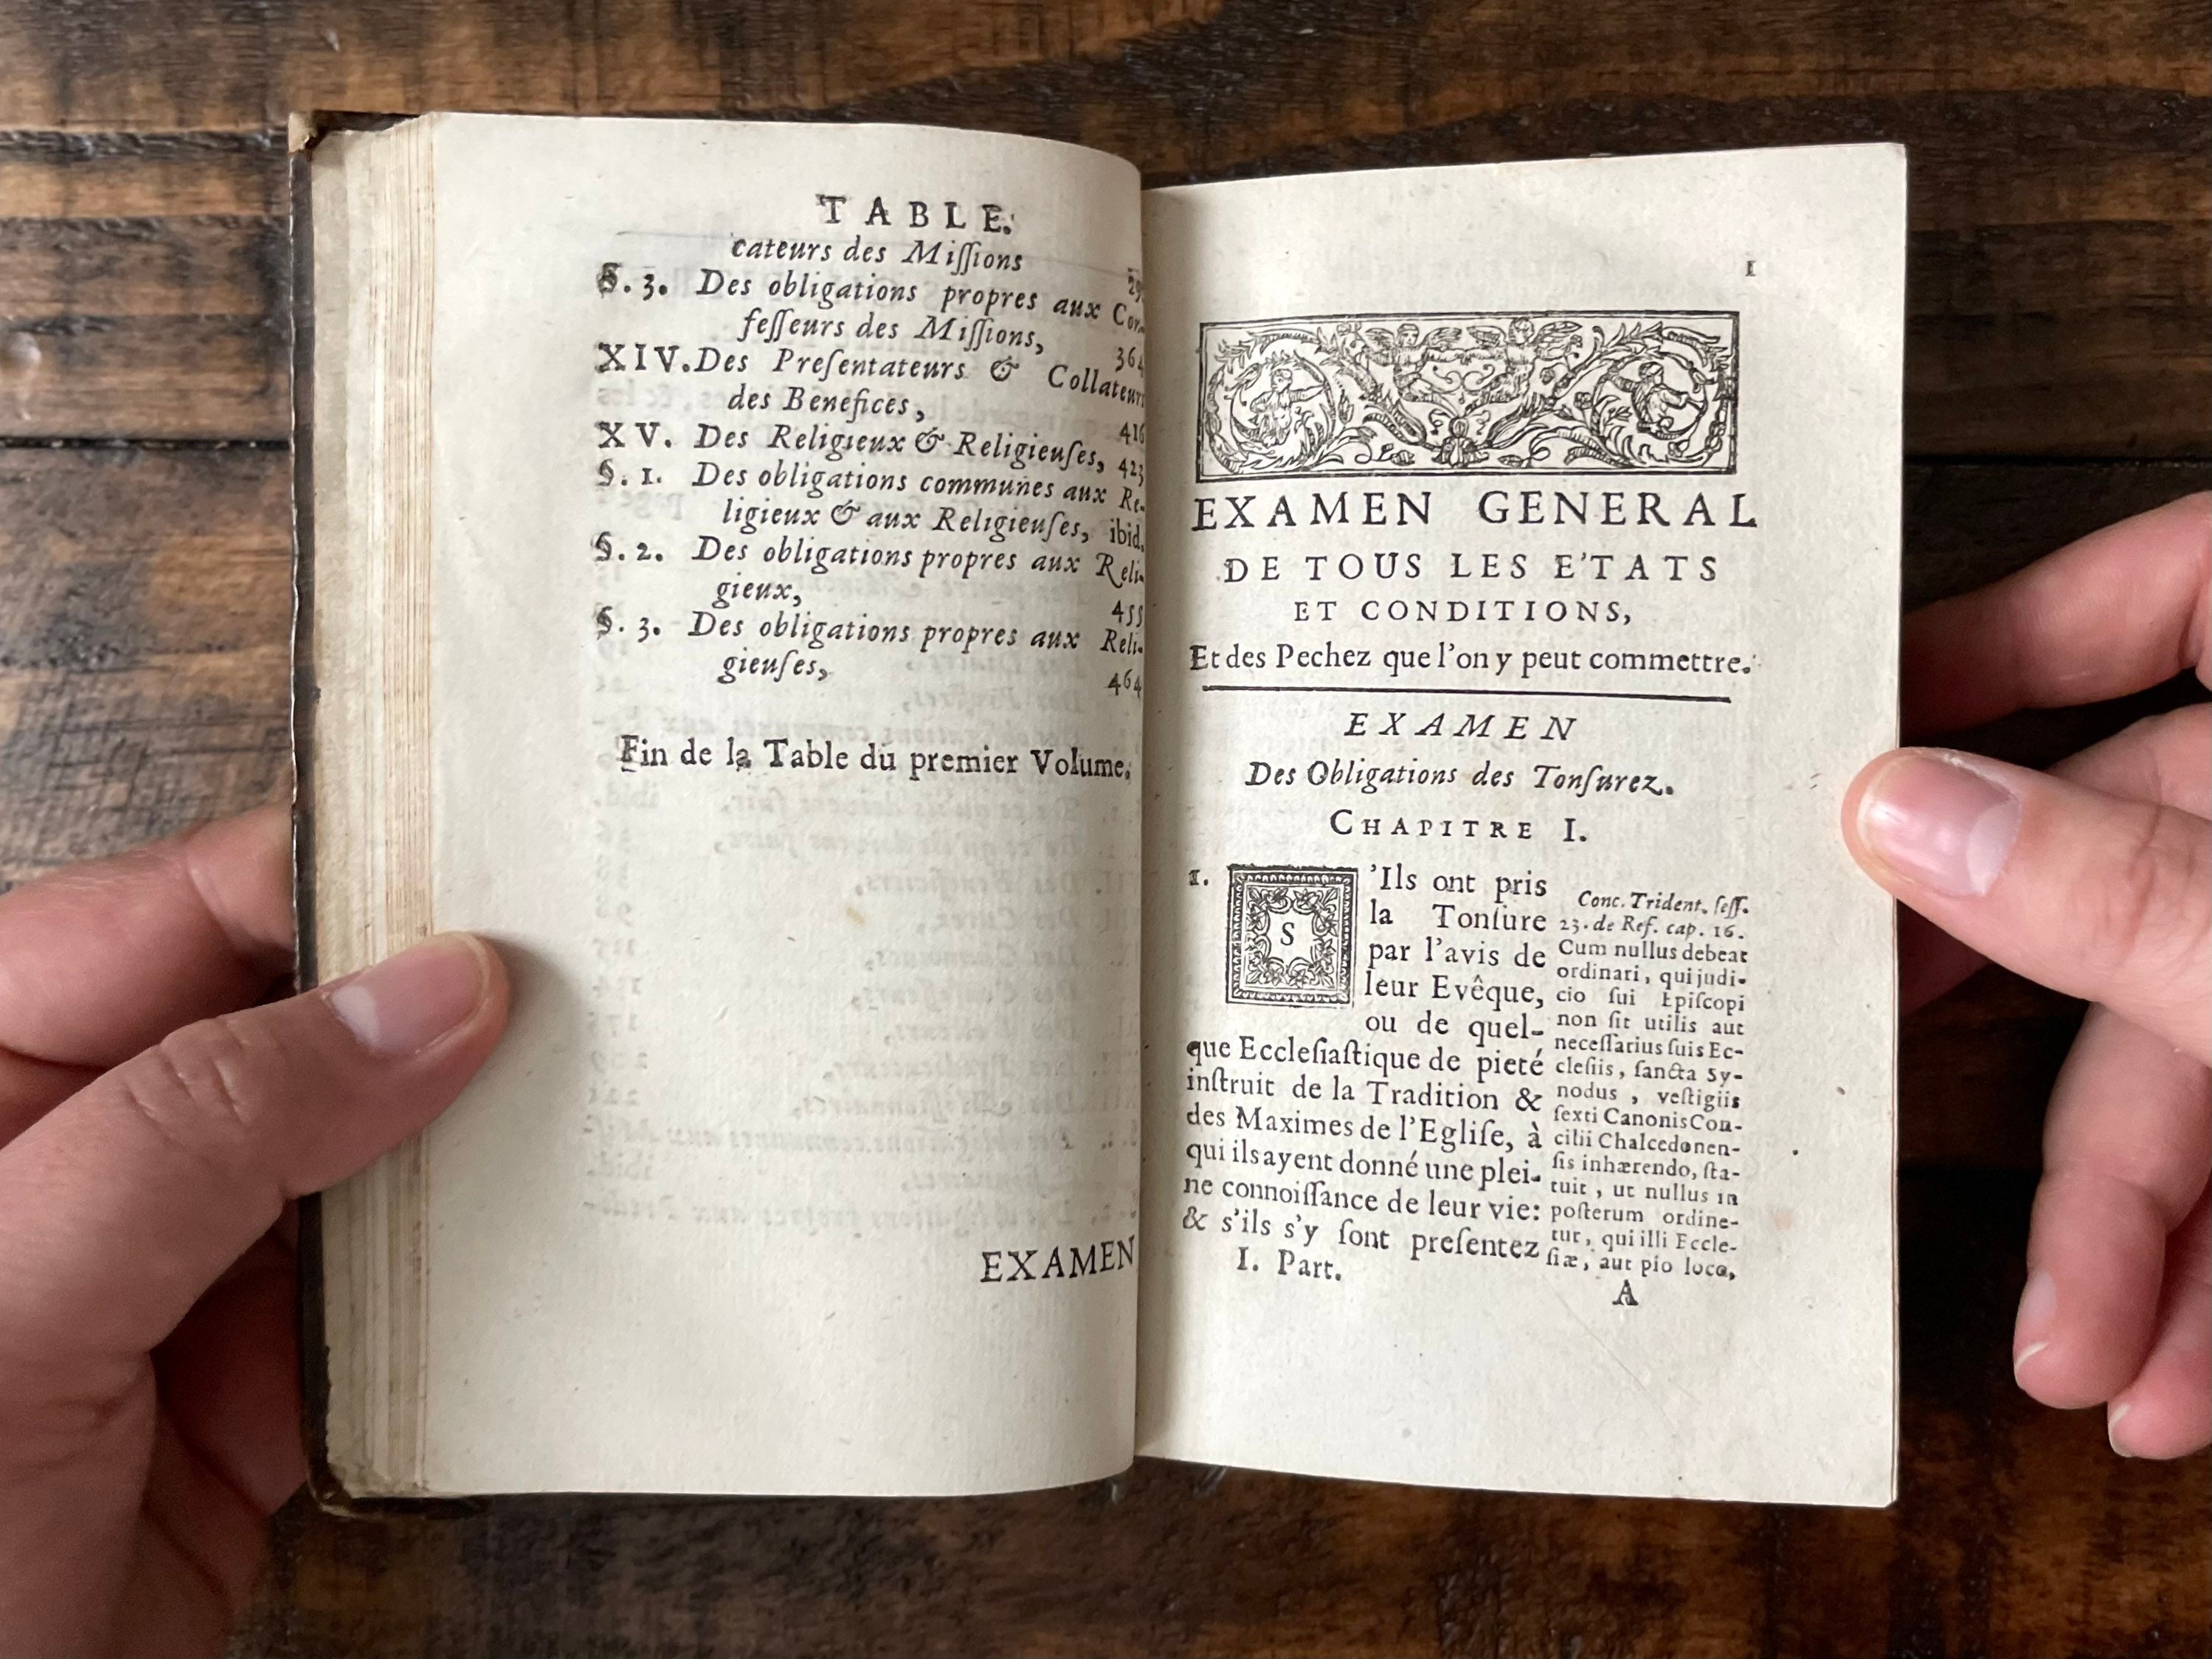 TABLE.
cateurs des Miſſions
§. 3. Des obligations propres aux Con-
feſſeurs des Miſſions, 364
XIV. Des Preſentateurs & Collateurs
des Benefices, 416
XV. Des Religieux & Religieuſes, 423
§. 1. Des obligations communes aux Re-
ligieux & aux Religieuſes, ibid.
§. 2. Des obligations propres aux Reli-
gieux, 455
§. 3. Des obligations propres aux Reli-
gieuſes, 464
Fin de la Table du premier Volume.
EXAMEN
1
EXAMEN GENERAL
DE TOUS LES E'TATS
ET CONDITIONS,
Et des Pechez que l'on y peut commettre.
EXAMEN
Des Obligations des Tonſurez.
CHAPITRE I.
1. S'Ils ont pris
la Tonſure
par l'avis de
leur Evêque,
ou de quel-
que Eccleſiaſtique de pieté
inſtruit de la Tradition &
des Maximes de l'Egliſe, à
qui ils ayent donné une plei-
ne connoiſſance de leur vie:
& s'ils s'y ſont preſentez
Conc. Trident. ſeſſ.
23. de Ref. cap. 16.
Cum nullus debeat
ordinari, qui judi-
cio ſui Epiſcopi
non ſit utilis aut
neceſſarius ſuis Ec-
cleſiis, ſancta Sy-
nodus, veſtigiis
ſexti Canonis Con-
cilii Chalcedonen-
ſis inhærendo, ſta-
tuit, ut nullus in
poſterum ordine-
tur, qui illi Eccle-
ſiæ, aut pio loco,
I. Part.
A